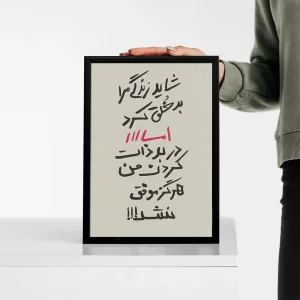 شاید زندگی مرا
بدخُلق کرد
اما!!!
در بد ذات
کردن من
هرگز موفق
نشد!!!